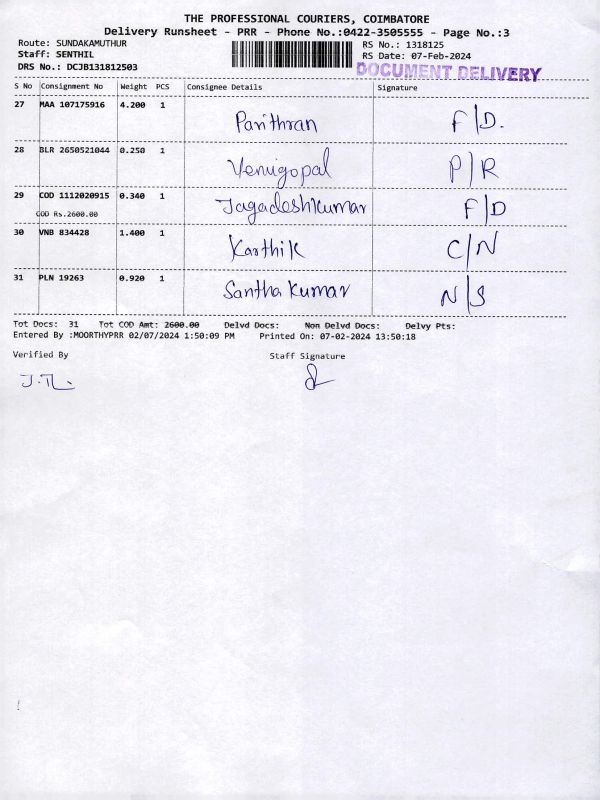 THE PROFESSIONAL COURIERS, COIMBATORE
Delivery Runsheet - PRR - Phone No.:0422-3505555 - Page No.:3
Route: SUNDAKAMUTHUR
RS No.: 1318125
Staff: SENTHIL
RS Date: 07-Feb-2024
DRS No.: DCJB131812503
DOCUMENT DELIVERY
S No Consignment No Weight PCS Consignee Details Signature
27 MAA 107175916 4.200 1
Parithran F/D.
28 BLR 2650521044 0.250 1
Venugopal P/R
29 COD 1112020915 0.340 1
Jagadeshkumar F/D
COD Rs.2600.00
30 VNB 834428 1.400 1
Karthik C/N
31 PLN 19263 0.920 1
Santha Kumar N/S
Tot Docs: 31 Tot COD Amt: 2600.00 Delvd Docs: Non Delvd Docs: Delvy Pts:
Entered By :MOORTHYPRR 02/07/2024 1:50:09 PM Printed On: 07-02-2024 13:50:18
Verified By Staff Signature